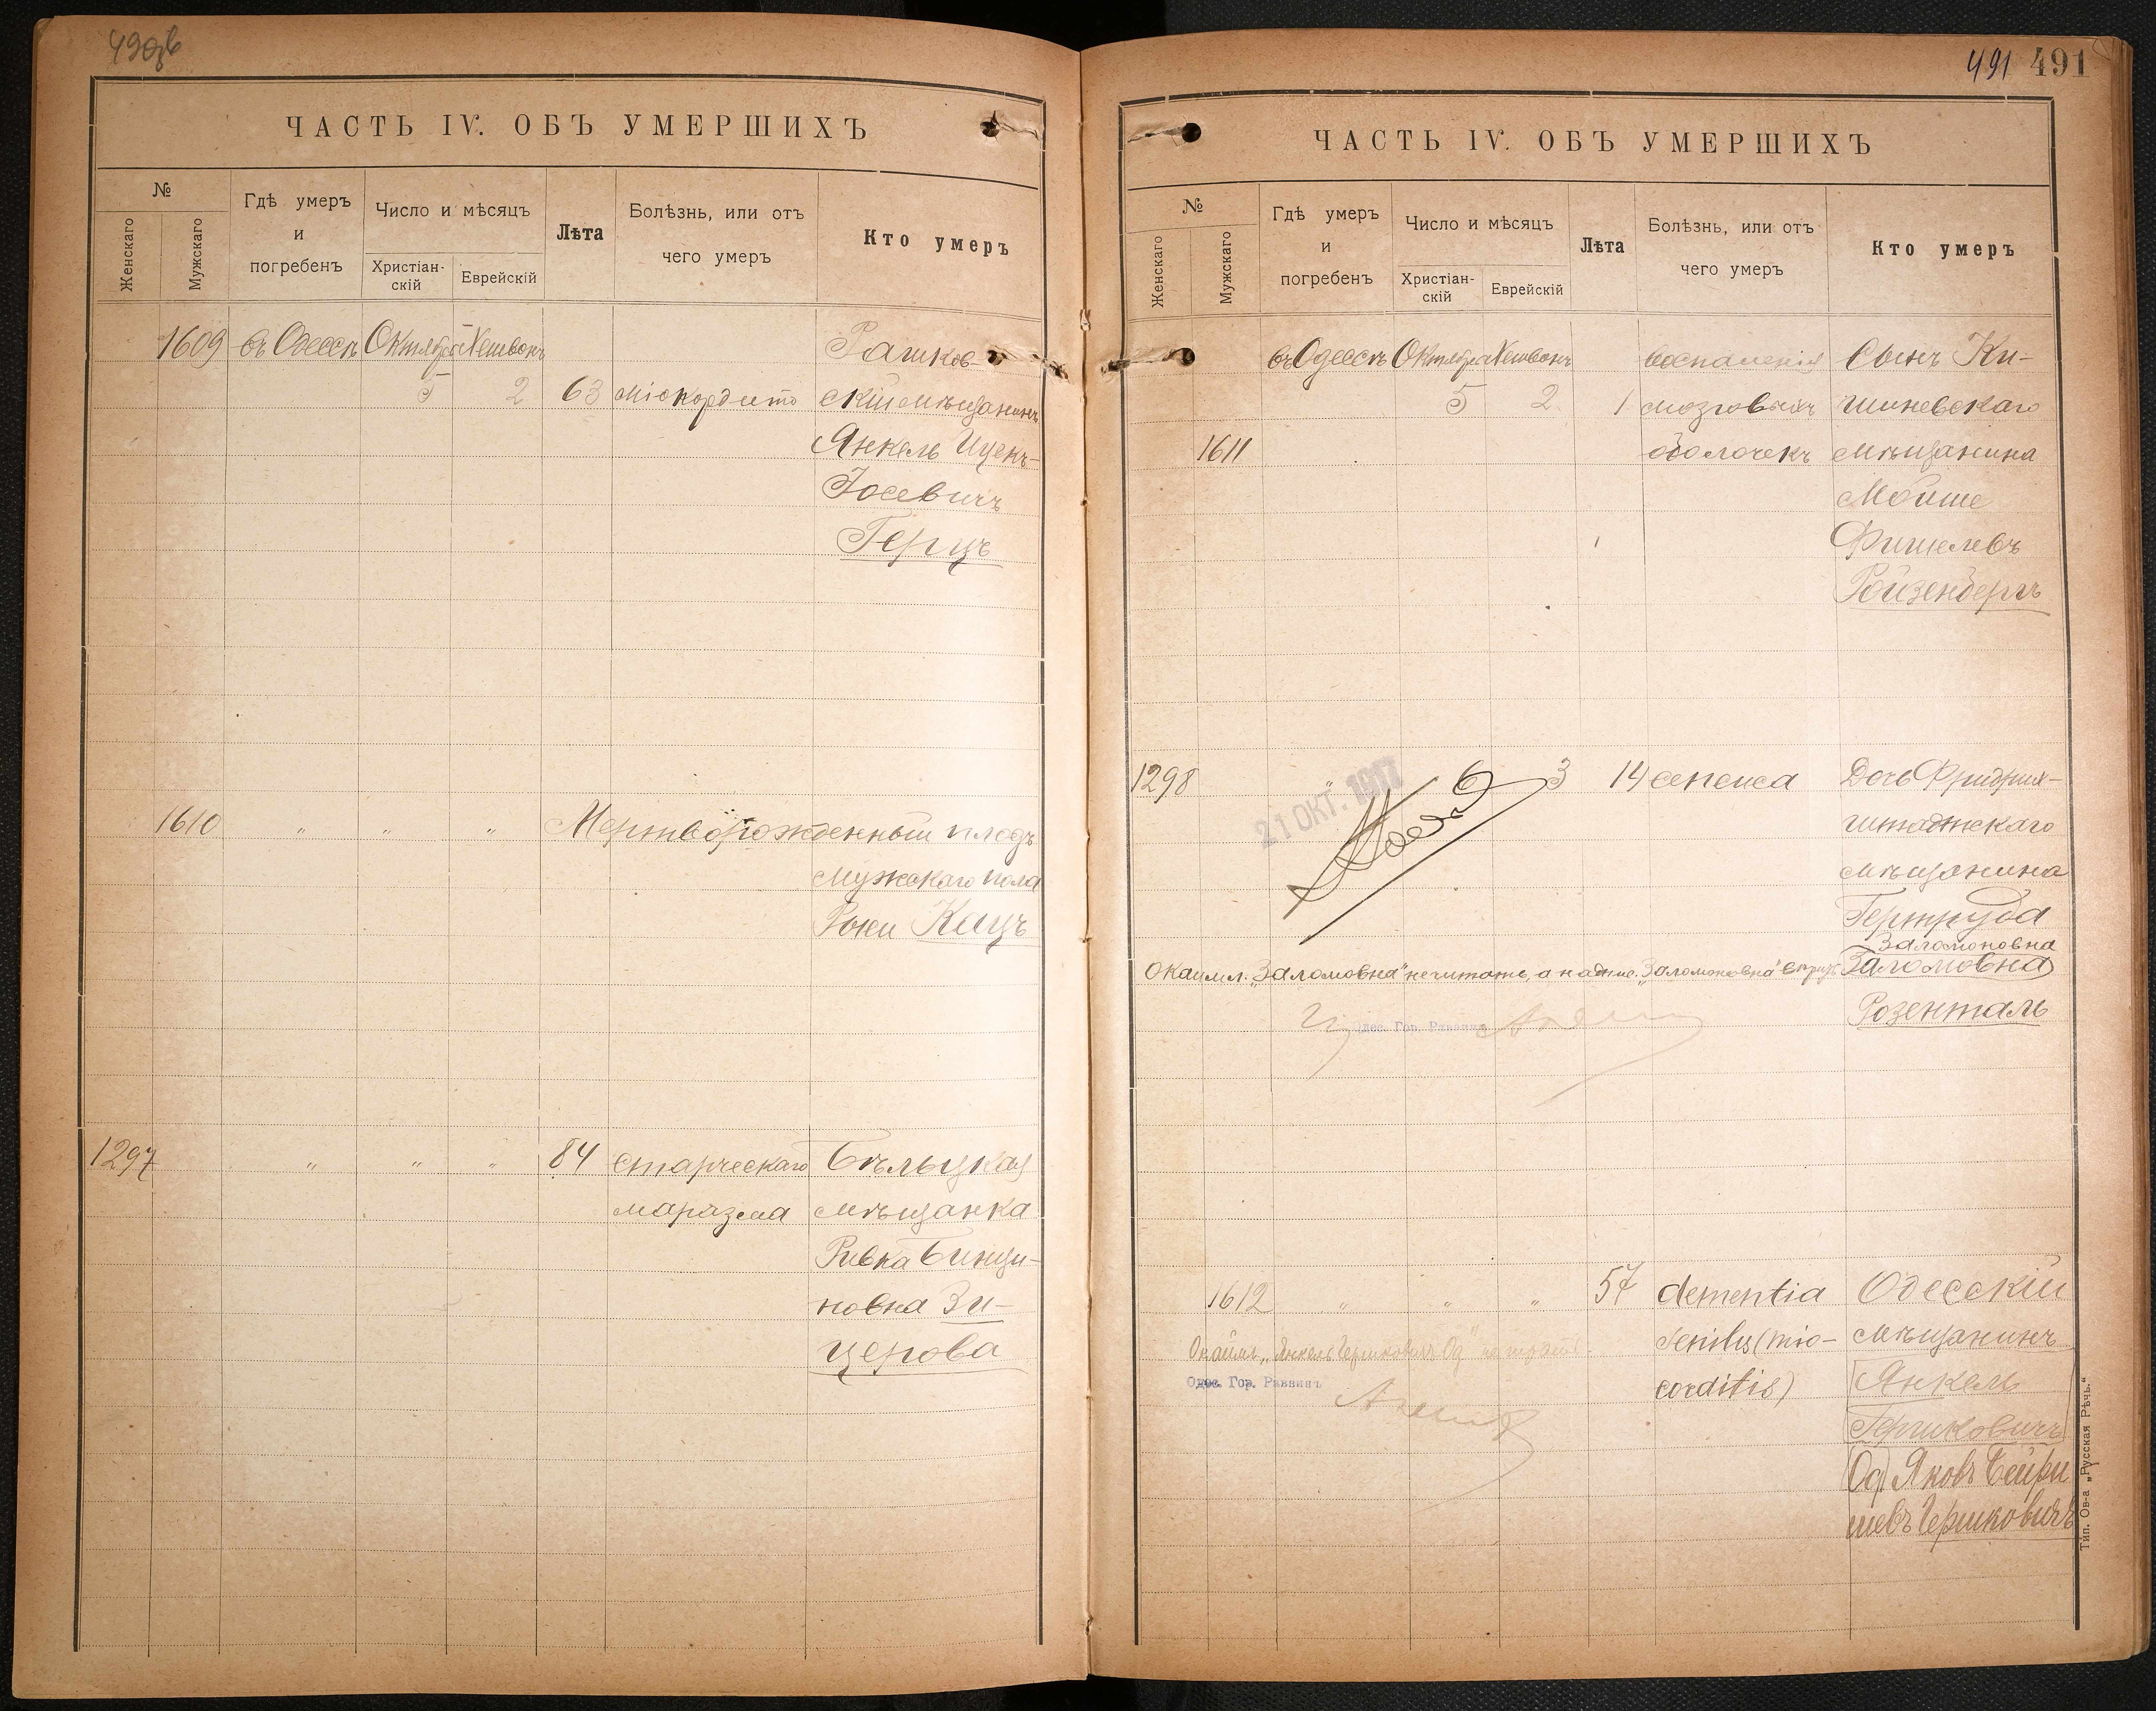 490об
ЧАСТЬ IV. ОБЪ УМЕРШИХЪ
№
Женскаго
Мужскаго
Гдѣ умеръ
и
погребенъ
Число и мѣсяцъ
Христіан-
скій
Еврейскій
Лѣта
Болѣзнь, или отъ
чего умеръ
Кто умеръ
1609 въ Одессѣ Октября Хешвонъ Рашков-
5 2 63 міокордита скій мѣщанинъ
Янкель Ицекъ-
Іосевичъ
Герцъ
1610 " " " Мертворожденный плодъ
мужскаго пола
Рыси Кацъ
1297 " " " 84 старческаго Бѣльцкая
маразма мѣщанка
Ривка Бенци-
новна Зи-
церова
491 491
ЧАСТЬ IV. ОБЪ УМЕРШИХЪ
№
Женскаго
Мужскаго
Гдѣ умеръ
и
погребенъ
Число и мѣсяцъ
Христіан-
скій
Еврейскій
Лѣта
Болѣзнь, или отъ
чего умеръ
Кто умеръ
въ Одессѣ Октября Хешвонъ воспаленія Сынъ Ки-
5 2 1 мозговыхъ шиневскаго
1611 оболочекъ мѣщанина
Мойше
Фишелевъ
Ройзенбергъ
1298 " 6 3 14 сепсиса Дочь Фридрих-
21 ОКТ. 1917
штадтскаго
мѣщанина
Гертруда
Заломоновна
Окаймл. „Заломовна" не читать, а надпис. „Заломоновна" Заломовна
Розенталь
Одес. Гор. Раввинъ
1612 " " " 57 dementia Одесскій
senilis (mio- мѣщанинъ
corditis) Янкель
Окаймл. „Янкель Гершковичъ Од" не читать
Одес. Гор. Раввинъ
Гершковичъ
Од) Яковъ Бейри
шевъ Гершковичъ
Тип. Ов-а „Русская Рѣчь."